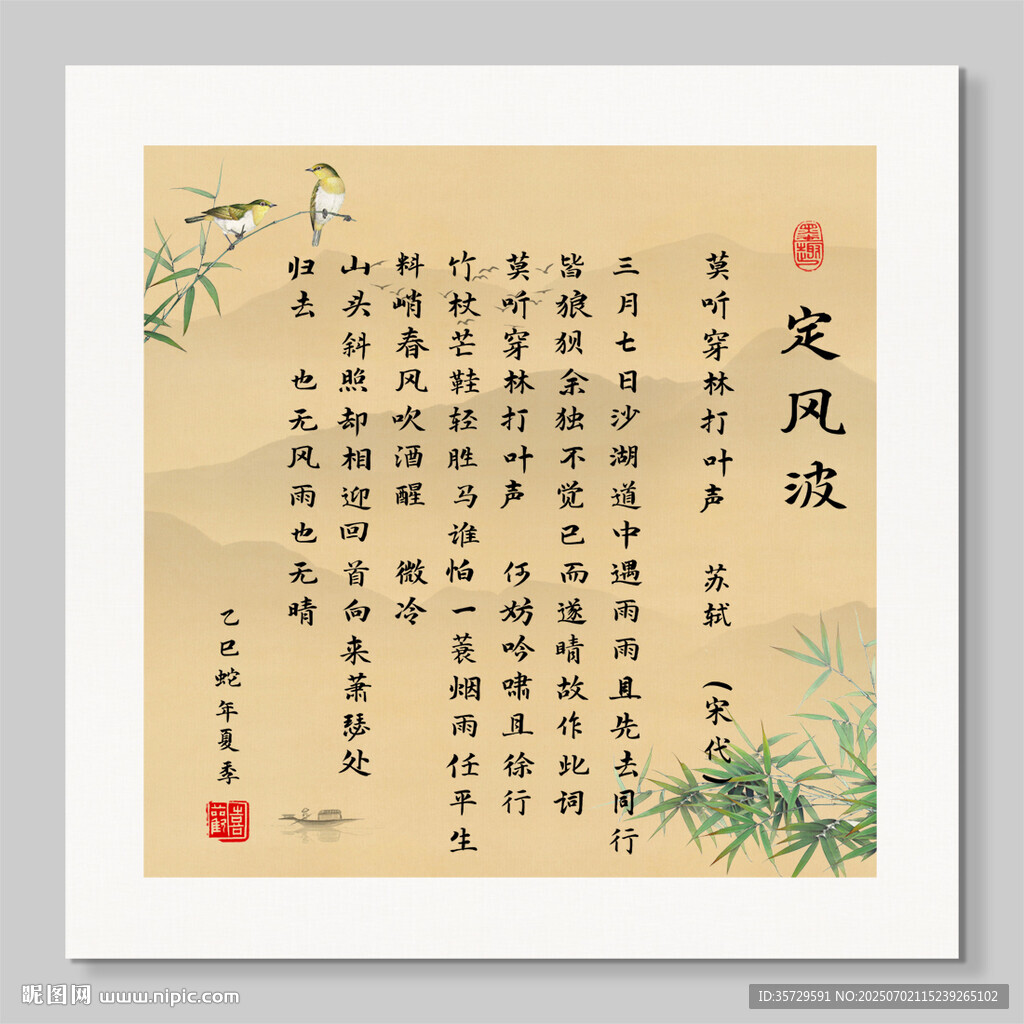 墨趣
定风波
莫听穿林打叶声 苏轼 (宋代)
三月七日沙湖道中遇雨雨且先去同行
皆狼狈余独不觉已而遂晴故作此词
莫听穿林打叶声 何妨吟啸且徐行
竹杖芒鞋轻胜马谁怕一蓑烟雨任平生
料峭春风吹酒醒 微冷
山头斜照却相迎回首向来萧瑟处
归去 也无风雨也无晴
乙巳蛇年夏季
昵图网 www.nipic.com
ID:35729591 NO:20250702115239265102